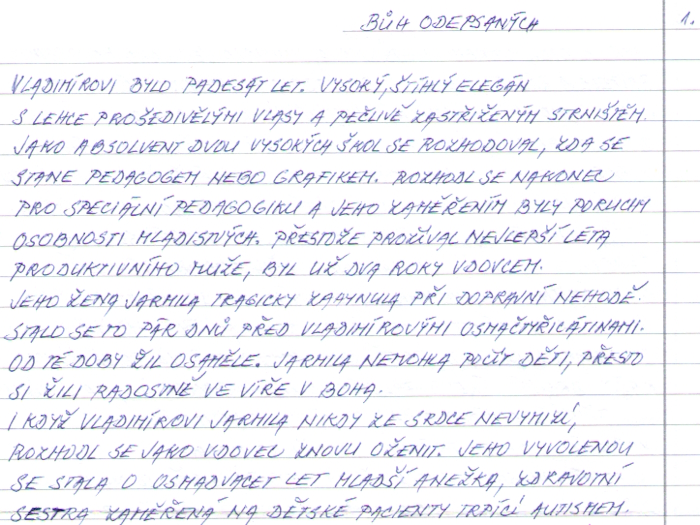 BŮH ODEPSANÝCH 1.
VLADIMÍROVI BYLO PADESÁT LET. VYSOKÝ, ŠTÍHLÝ ELEGÁN
S LEHCE PROŠEDIVĚLÝMI VLASY A PEČLIVĚ ZASTŘIŽENÝM STRNIŠTĚM.
JAKO ABSOLVENT DVOU VYSOKÝCH ŠKOL SE ROZHODOVAL, ZDA SE
STANE PEDAGOGEM NEBO GRAFIKEM. ROZHODL SE NAKONEC
PRO SPECIÁLNÍ PEDAGOGIKU A JEHO ZAMĚŘENÍM BYLY PORUCHY
OSOBNOSTI MLADISTVÝCH. PŘESTOŽE PROŽÍVAL NEJLEPŠÍ LÉTA
PRODUKTIVNÍHO MUŽE, BYL UŽ DVA ROKY VDOVCEM.
JEHO ŽENA JARMILA TRAGICKY ZAHYNULA PŘI DOPRAVNÍ NEHODĚ.
STALO SE TO PÁR DNŮ PŘED VLADIMÍROVÝMI OSMAČTYŘICÁTINAMI.
OD TÉ DOBY ŽIL OSAMĚLE. JARMILA NEMOHLA POČÍT DĚTI, PŘESTO
SI ŽILI RADOSTNĚ VE VÍŘE V BOHA.
I KDYŽ VLADIMÍROVI JARMILA NIKDY ZE SRDCE NEVYMIZÍ,
ROZHODL SE JAKO VDOVEC ZNOVU OŽENIT. JEHO VYVOLENOU
SE STALA O OSMADVACET LET MLADŠÍ ANEŽKA, ZDRAVOTNÍ
SESTRA ZAMĚŘENÁ NA DĚTSKÉ PACIENTY TRPÍCÍ AUTISMEM.